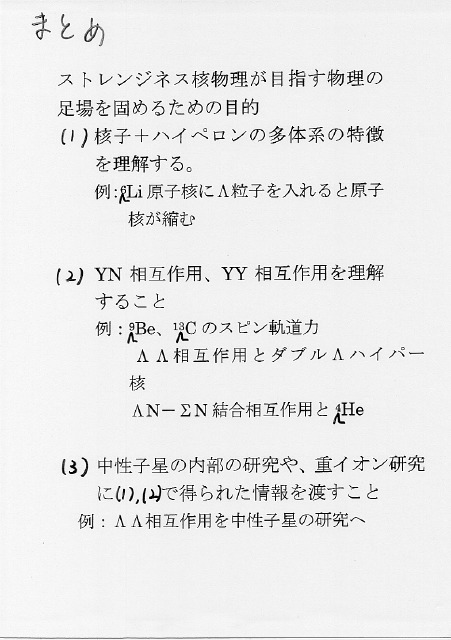 まとめ
ストレンジネス核物理が目指す物理の
足場を固めるための目的
(1) 核子＋ハイペロンの多体系の特徴
を理解する。
例:⁶ΛLi 原子核にΛ粒子を入れると原子
核が縮む
(2) YN 相互作用、YY 相互作用を理解
すること
例：⁹ΛBe、¹³ΛC のスピン軌道力
ΛΛ相互作用とダブルΛハイパー
核
ΛN－ΣN 結合相互作用と ⁴ΛHe
(3) 中性子星の内部の研究や、重イオン研究
に(1),(2)で得られた情報を渡すこと
例：ΛΛ相互作用を中性子星の研究へ